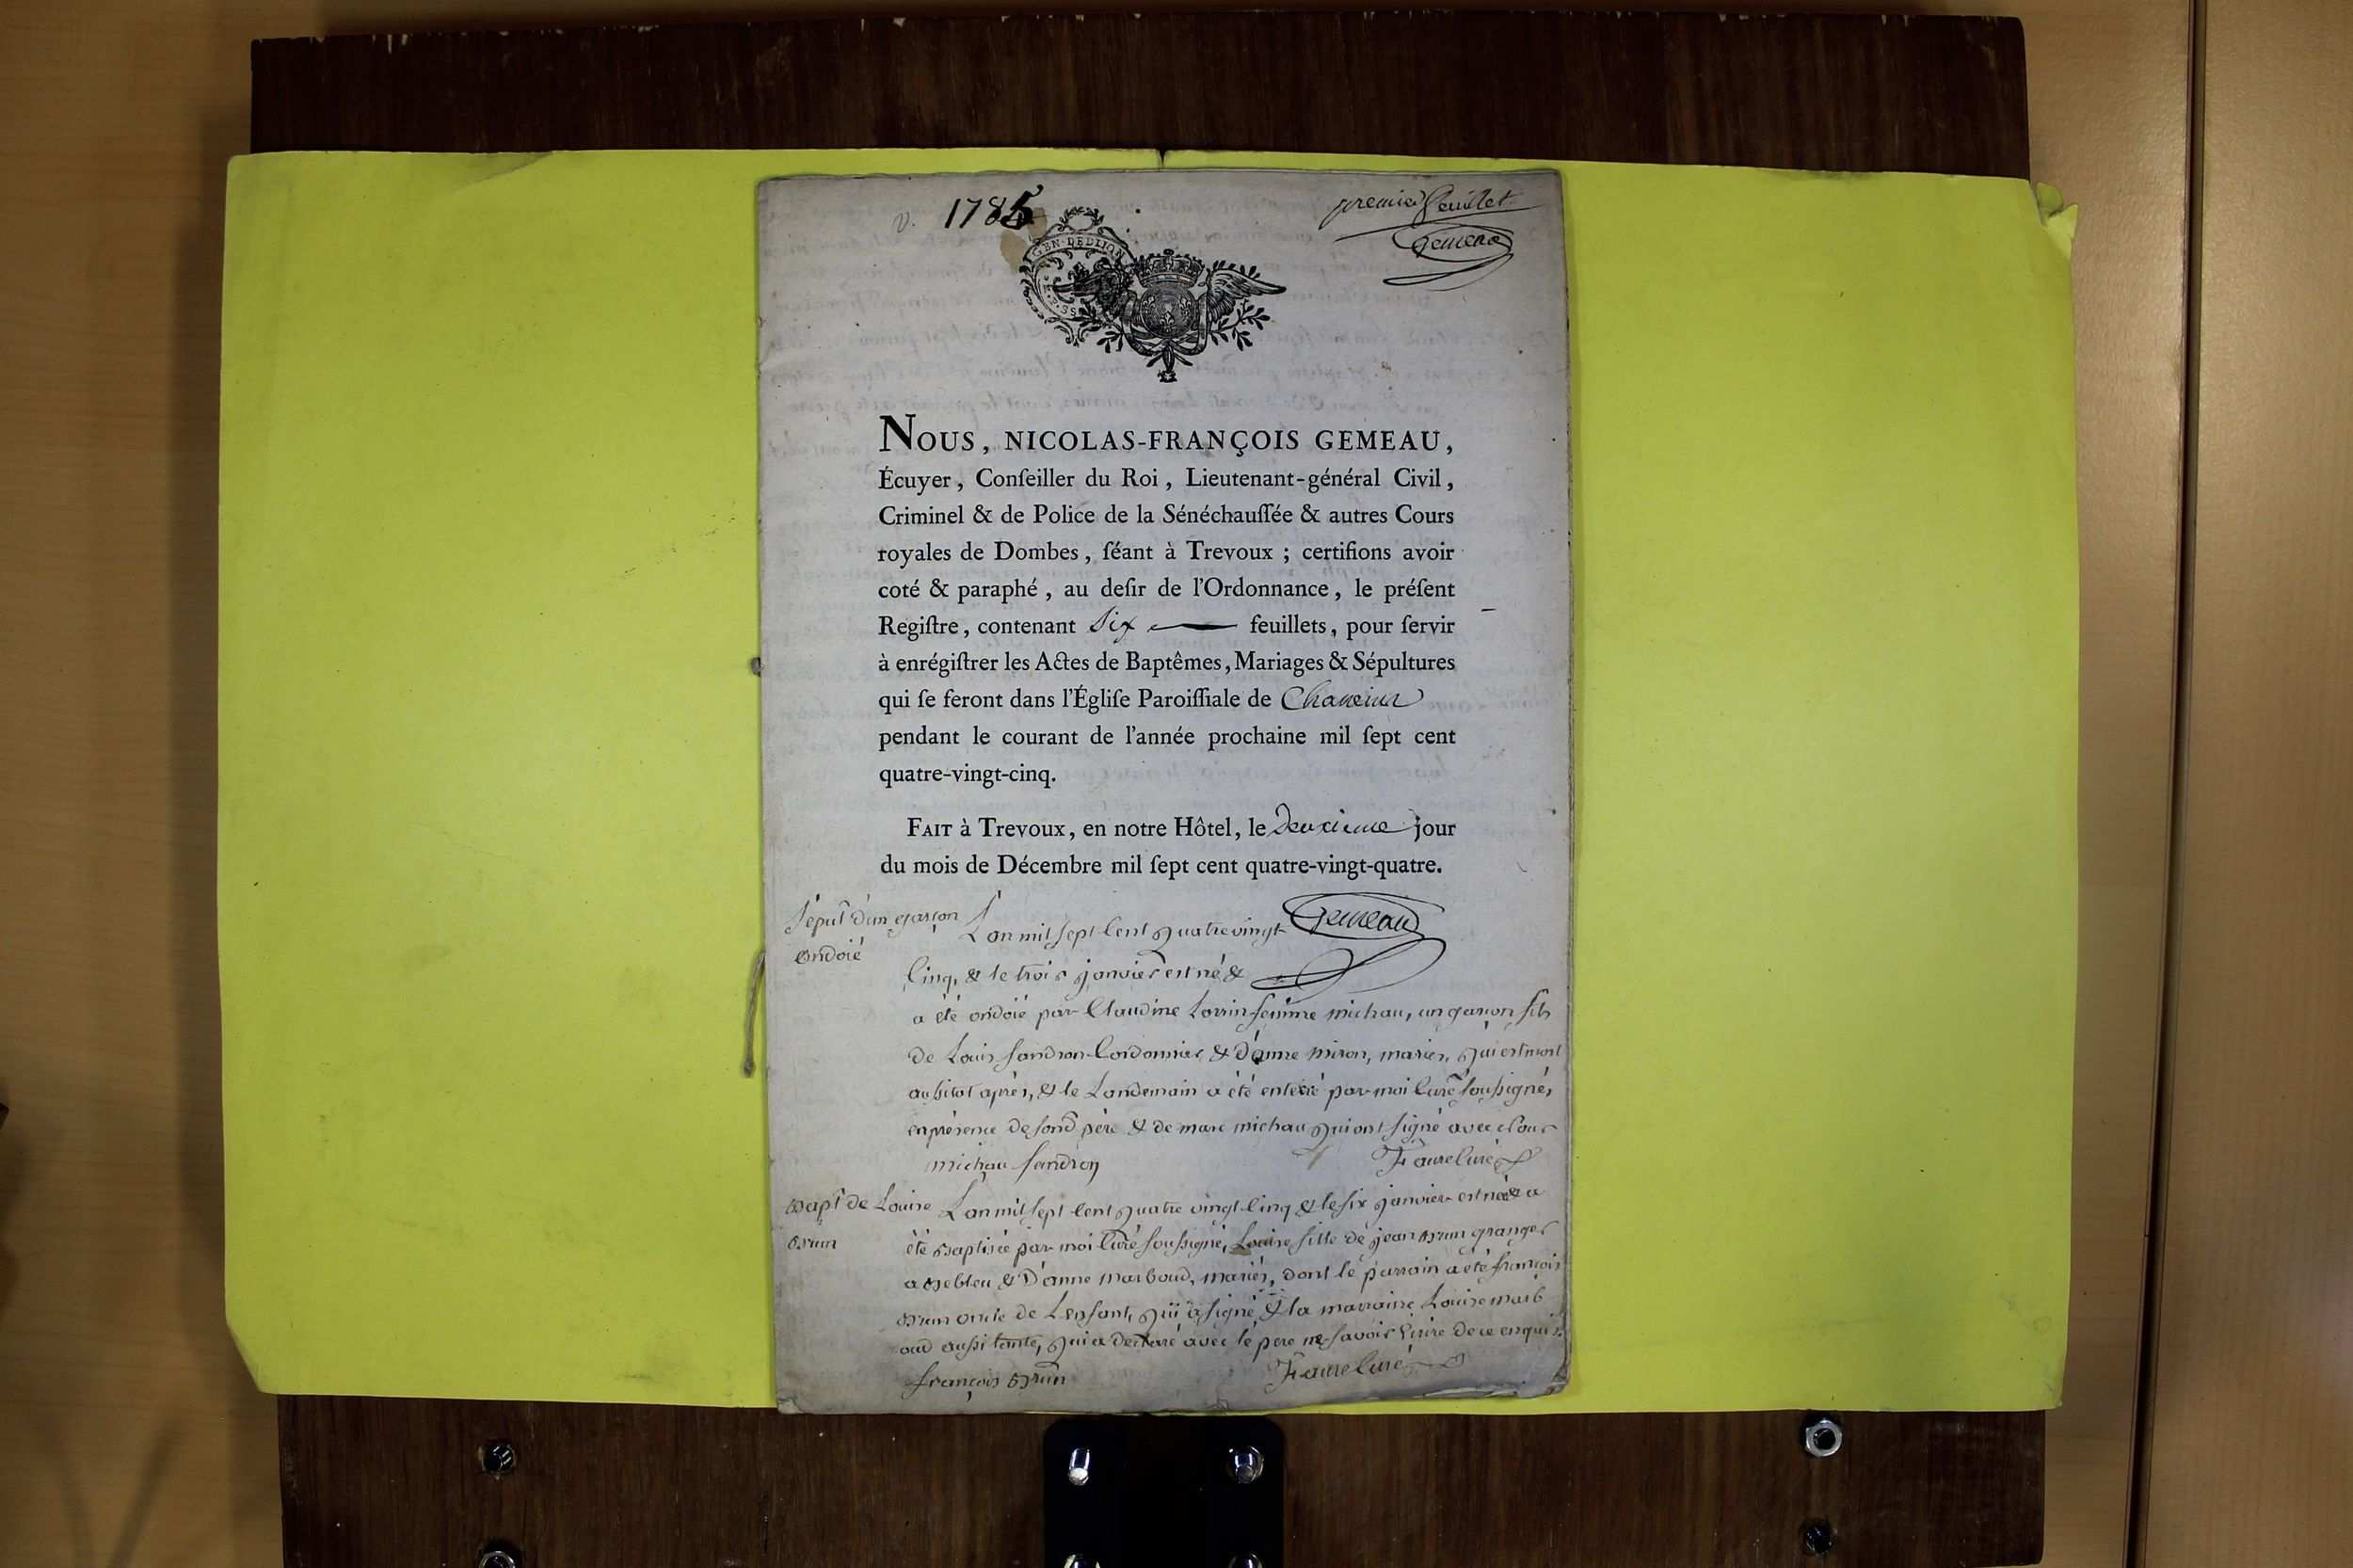 v. 1785
premier feuillet
Gemeau
GEN·DEDLION
NOUS, NICOLAS-FRANÇOIS GEMEAU,
Écuyer, Conſeiller du Roi, Lieutenant-général Civil,
Criminel & de Police de la Sénéchauſſée & autres Cours
royales de Dombes, ſéant à Trevoux ; certifions avoir
coté & paraphé, au deſir de l'Ordonnance, le préſent
Regiſtre, contenant Six feuillets, pour ſervir
à enrégiſtrer les Actes de Baptêmes, Mariages & Sépultures
qui ſe feront dans l'Égliſe Paroiſſiale de Chaneins
pendant le courant de l'année prochaine mil ſept cent
quatre-vingt-cinq.
FAIT à Trevoux, en notre Hôtel, le Deuxieme jour
du mois de Décembre mil ſept cent quatre-vingt-quatre.
Gemeau
Sepult d'un garçon
ondoié
L'an mil sept cent quatre vingt
cinq, & le trois janvier est né &
a été ondoié par Claudine Lorrin femme michau, un garçon fils
de Louis fandron Cordonnier & d'anne miron, mariés, qui est mort
aussitot après, & le Landemain a été enterré par moi curé soussigné,
en présence de son d père & de marc michau qui ont signé avec nous
michau fandron Faure curé
Bapt de Louise
Brun
L'an mil sept cent quatre vingt cinq & le six janvier est née & a
été Baptisée par moi curé soussigné, Louise fille de jean Brun granger
a Bebleu & D'anne marboud, mariés, dont le parrain a été françois
Brun oncle de Lenfant, qui a signé & la marraine Louise marb
oud aussi tante, qui a declaré avec le pere ne savoir écrire de ce enquis.
françois Brun Faure curé